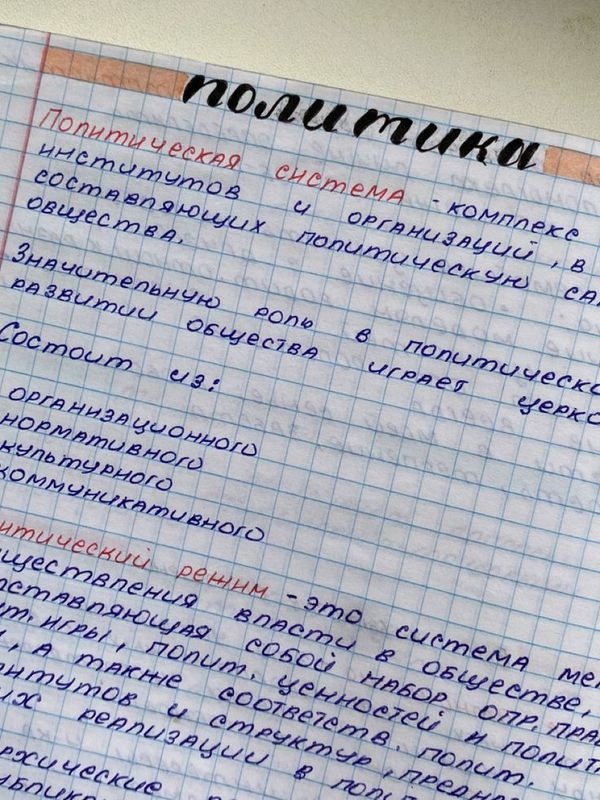 политика
Политическая система - комплекс
институтов и организаций, в
составляющих политическую са
общества.
Значительную роль в политическо
развитии общества играет церко
Состоит из:
организационного
нормативного
культурного
коммуникативного
итический режим - это система ме
уществления власти в обществе,
оставляющая собой набор опр. прав
ит. игры, полит. ценностей и полити
, а также соответств. полит.
нтитутов и структур, предна
их реализации в полит
рхические